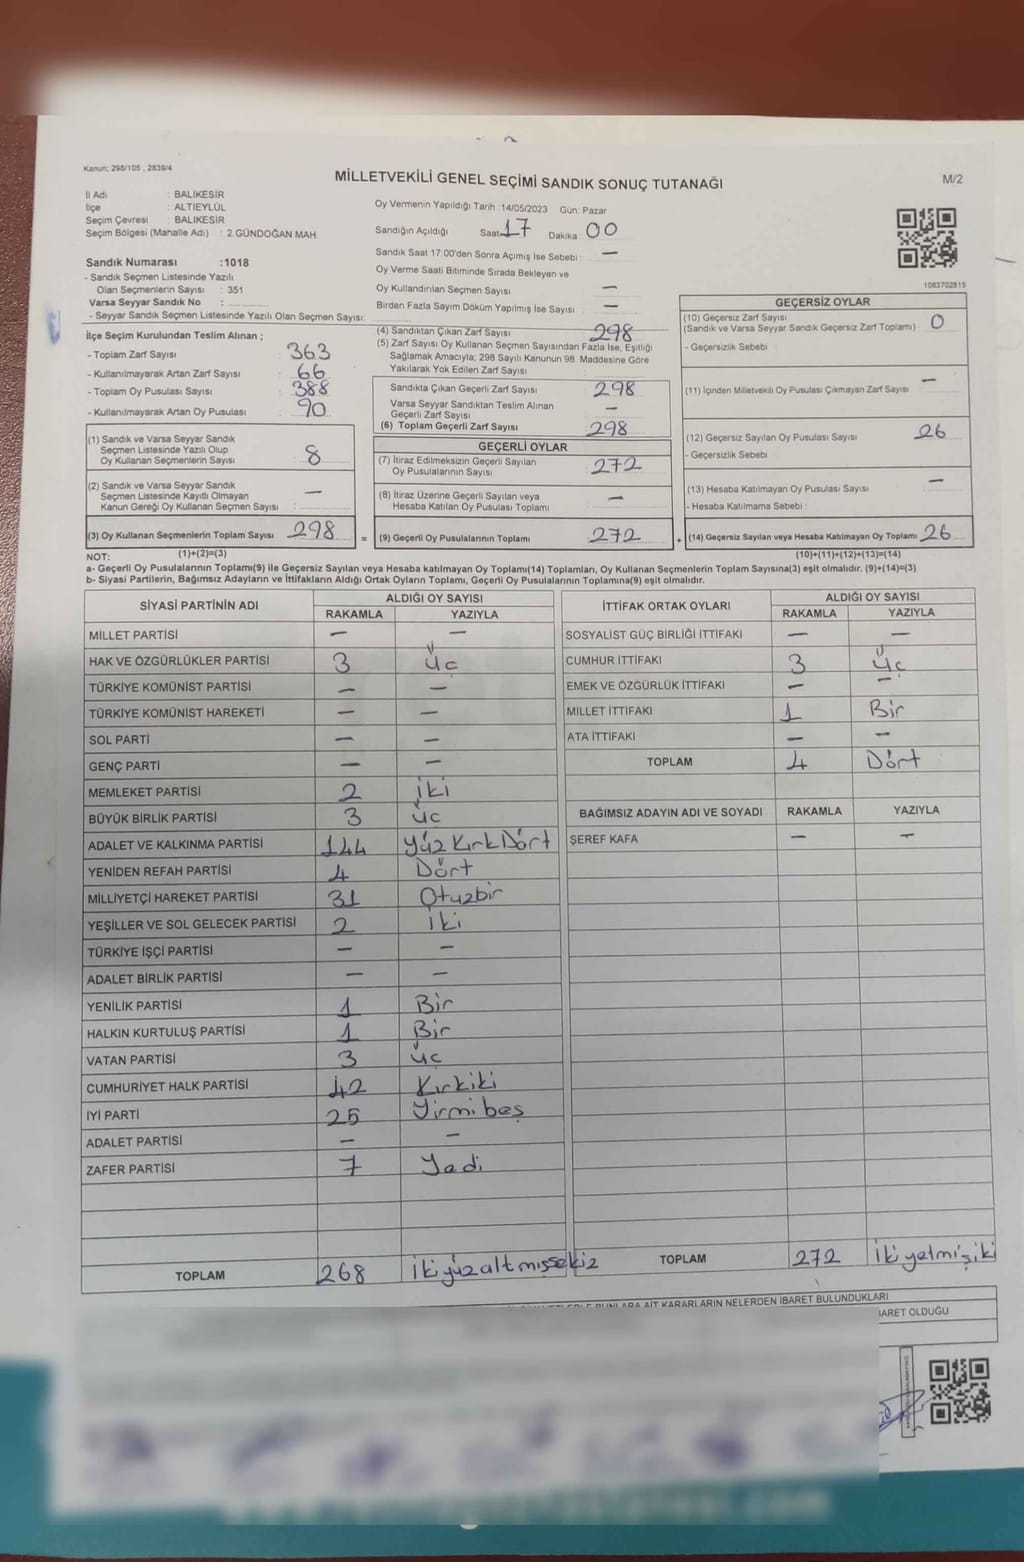 Kanun; 298/105 , 2839/4
MİLLETVEKİLİ GENEL SEÇİMİ SANDIK SONUÇ TUTANAĞI
M/2
İl Adı : BALIKESİR
İlçe : ALTIEYLÜL
Seçim Çevresi : BALIKESİR
Seçim Bölgesi (Mahalle Adı) : 2.GÜNDOĞAN MAH.
Sandık Numarası :1018
- Sandık Seçmen Listesinde Yazılı
Olan Seçmenlerin Sayısı : 351
Varsa Seyyar Sandık No :
- Seyyar Sandık Seçmen Listesinde Yazılı Olan Seçmen Sayısı:
Oy Vermenin Yapıldığı Tarih :14/05/2023 Gün: Pazar
Sandığın Açıldığı Saat 17 Dakika : 00
Sandık Saat 17:00'den Sonra Açımış İse Sebebi : —
Oy Verme Saati Bitiminde Sırada Bekleyen ve
Oy Kullandırılan Seçmen Sayısı —
Birden Fazla Sayım Döküm Yapılmış İse Sayısı : —
1083702815
İlçe Seçim Kurulundan Teslim Alınan ;
- Toplam Zarf Sayısı : 363
- Kullanılmayarak Artan Zarf Sayısı : 66
- Toplam Oy Pusulası Sayısı : 388
- Kullanılmayarak Artan Oy Pusulası : 90
(1) Sandık ve Varsa Seyyar Sandık
Seçmen Listesinde Yazılı Olup
Oy Kullanan Seçmenlerin Sayısı : 8
(2) Sandık ve Varsa Seyyar Sandık
Seçmen Listesinde Kayıtlı Olmayan
Kanun Gereği Oy Kullanan Seçmen Sayısı : —
(3) Oy Kullanan Seçmenlerin Toplam Sayısı 298
(1)+(2)=(3)
(4) Sandıktan Çıkan Zarf Sayısı 298
(5) Zarf Sayısı Oy Kullanan Seçmen Sayısından Fazla İse, Eşitliği
Sağlamak Amacıyla; 298 Sayılı Kanunun 98. Maddesine Göre
Yakılarak Yok Edilen Zarf Sayısı :
Sandıkta Çıkan Geçerli Zarf Sayısı 298
Varsa Seyyar Sandıktan Teslim Alınan
Geçerli Zarf Sayısı —
(6) Toplam Geçerli Zarf Sayısı 298
GEÇERLİ OYLAR
(7) İtiraz Edilmeksizin Geçerli Sayılan
Oy Pusulalarının Sayısı 272
(8) İtiraz Üzerine Geçerli Sayılan veya
Hesaba Katılan Oy Pusulası Toplamı —
= (9) Geçerli Oy Pusulalarının Toplamı 272 +
GEÇERSİZ OYLAR
(10) Geçersiz Zarf Sayısı
(Sandık ve Varsa Seyyar Sandık Geçersiz Zarf Toplamı) : 0
- Geçersizlik Sebebi :
(11) İçinden Milletvekili Oy Pusulası Çıkmayan Zarf Sayısı —
(12) Geçersiz Sayılan Oy Pusulası Sayısı 26
- Geçersizlik Sebebi
(13) Hesaba Katılmayan Oy Pusulası Sayısı —
- Hesaba Katılmama Sebebi :
(14) Geçersiz Sayılan veya Hesaba Katılmayan Oy Toplamı 26
(10)+(11)+(12)+(13)=(14)
NOT:
a- Geçerli Oy Pusulalarının Toplamı(9) ile Geçersiz Sayılan veya Hesaba katılmayan Oy Toplamı(14) Toplamları, Oy Kullanan Seçmenlerin Toplam Sayısına(3) eşit olmalıdır. (9)+(14)=(3)
b- Siyasi Partilerin, Bağımsız Adayların ve İttifakların Aldığı Ortak Oyların Toplamı, Geçerli Oy Pusulalarının Toplamına(9) eşit olmalıdır.
SİYASİ PARTİNİN ADI ALDIĞI OY SAYISI
RAKAMLA YAZIYLA
MİLLET PARTİSİ — —
HAK VE ÖZGÜRLÜKLER PARTİSİ 3 Üç
TÜRKİYE KOMÜNİST PARTİSİ — —
TÜRKİYE KOMÜNİST HAREKETİ — —
SOL PARTİ — —
GENÇ PARTİ — —
MEMLEKET PARTİSİ 2 İki
BÜYÜK BİRLİK PARTİSİ 3 Üç
ADALET VE KALKINMA PARTİSİ 144 Yüz Kırk Dört
YENİDEN REFAH PARTİSİ 4 Dört
MİLLİYETÇİ HAREKET PARTİSİ 31 Otuzbir
YEŞİLLER VE SOL GELECEK PARTİSİ 2 İki
TÜRKİYE İŞÇİ PARTİSİ — —
ADALET BİRLİK PARTİSİ — —
YENİLİK PARTİSİ 1 Bir
HALKIN KURTULUŞ PARTİSİ 1 Bir
VATAN PARTİSİ 3 Üç
CUMHURİYET HALK PARTİSİ 42 Kırkiki
İYİ PARTİ 25 Yirmibeş
ADALET PARTİSİ — —
ZAFER PARTİSİ 7 Yedi
TOPLAM 268 İkiyüzaltmışsekiz
İTTİFAK ORTAK OYLARI ALDIĞI OY SAYISI
RAKAMLA YAZIYLA
SOSYALİST GÜÇ BİRLİĞİ İTTİFAKI — —
CUMHUR İTTİFAKI 3 Üç
EMEK VE ÖZGÜRLÜK İTTİFAKI — —
MİLLET İTTİFAKI 1 Bir
ATA İTTİFAKI — —
TOPLAM 4 Dört
BAĞIMSIZ ADAYIN ADI VE SOYADI RAKAMLA YAZIYLA
ŞEREF KAFA — —
TOPLAM 272 İkiyetmişiki
BUNLARA AİT KARARLARIN NELERDEN İBARET BULUNDUKLARI
OLDUĞU